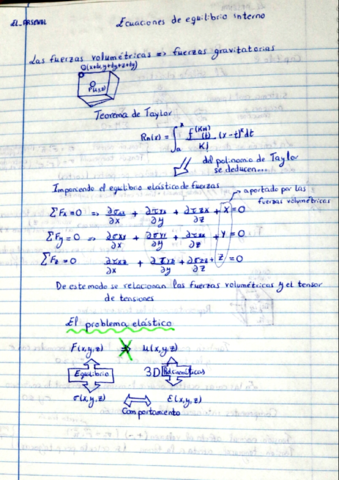 EL_ARSENAL
Ecuaciones de equilibrio interno
Las fuerzas volumétricas => fuerzas gravitatorias
Teorema de Taylor
Rn(x) = ∫ₐˣ f^(K+1)(t)/K! (x-t)^K dt
del polinomio de Taylor
se deducen...
Imponiendo el equilibrio elástico de fuerzas
aportado por las
fuerzas volumétricas
ΣFx=0 => ∂σxx/∂x + ∂τyx/∂y + ∂τzx/∂z + X = 0
ΣFy=0 => ∂τxy/∂x + ∂σyy/∂y + ∂τzy/∂z + Y = 0
ΣFz=0 => ∂τxz/∂x + ∂τyz/∂y + ∂σzz/∂z + Z = 0
De este modo se relacionan las fuerzas volumétricas y el tensor
de tensiones
El problema elástico
F(x,y,z) => u(x,y,z)
Equilibrio 3D
σ(x,y,z) <=> ε(x,y,z)
Comportamiento